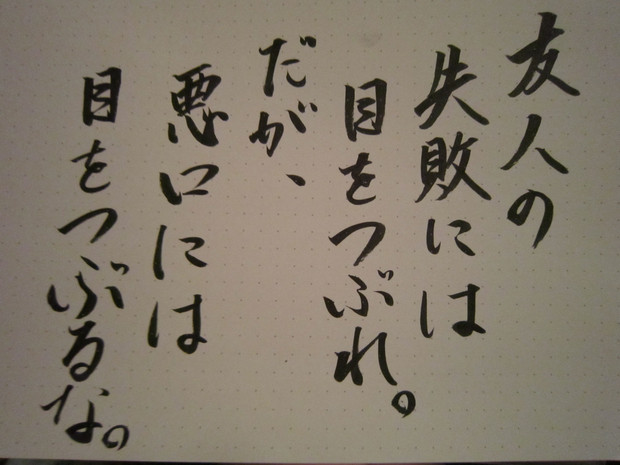 友人の
失敗には
目をつぶれ。
だが、
悪口には
目をつぶるな。